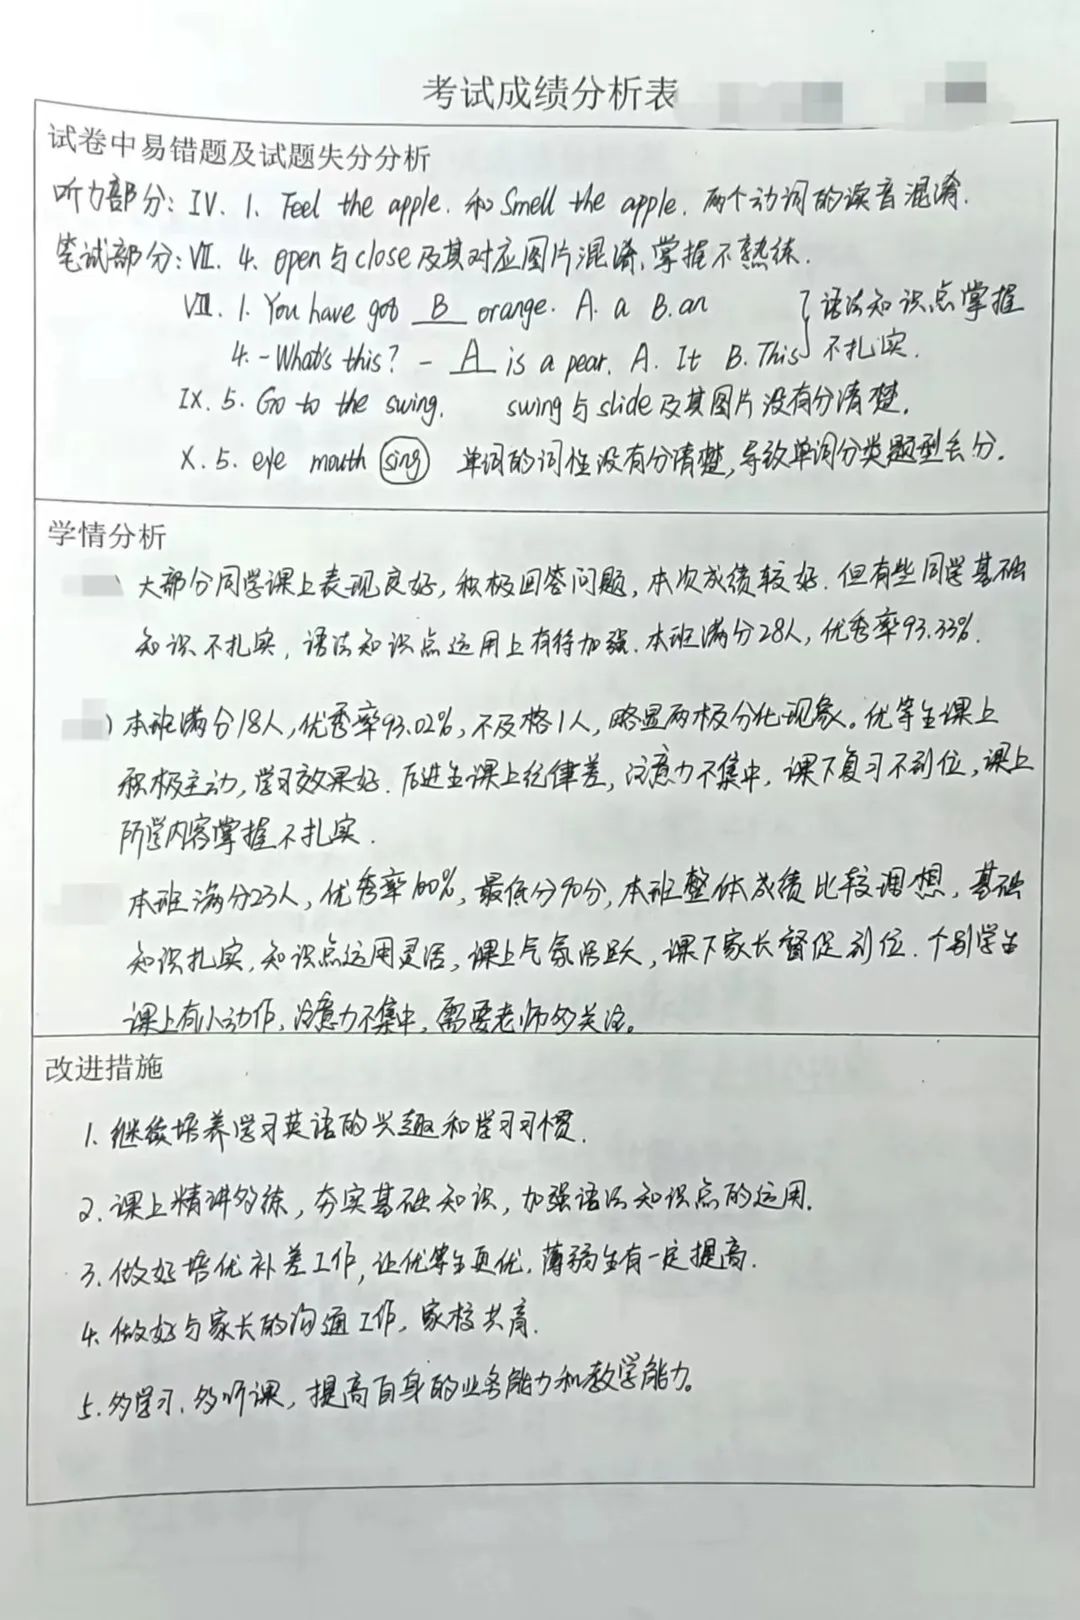 考试成绩分析表
试卷中易错题及试题失分分析
听力部分: IV. 1. Feel the apple. 和 Smell the apple. 两个动词的读音混淆.
笔试部分: VII. 4. open 与 close 及其对应图片混淆, 掌握不熟练.
VIII. 1. You have got B orange. A. a B. an
语法知识点掌握
4. -What's this? - A is a pear. A. It B. This
不扎实.
IX. 5. Go to the swing. swing 与 slide 及其图片没有分清楚.
X. 5. eye mouth sing 单词的词性没有分清楚, 导致单词分类题型丢分.
学情分析
大部分同学课上表现良好, 积极回答问题, 本次成绩较好. 但有些同学基础
知识不扎实, 语法知识点运用上有待加强. 本班满分28人, 优秀率93.33%.
) 本班满分18人, 优秀率93.02%, 不及格1人, 略显两极分化现象。优等生课上
积极主动, 学习效果好. 后进生课上纪律差, 注意力不集中, 课下复习不到位, 课上
所学内容掌握不扎实.
本班满分23人, 优秀率100%, 最低分90分, 本班整体成绩比较理想, 基础
知识扎实, 知识点运用灵活, 课上气氛活跃, 课下家长督促到位. 个别学生
课上有小动作, 注意力不集中, 需要老师多关注。
改进措施
1. 继续培养学习英语的兴趣和学习习惯.
2. 课上精讲多练, 夯实基础知识, 加强语法知识点的运用.
3. 做好培优补差工作, 让优等生更优, 薄弱生有一定提高.
4. 做好与家长的沟通工作, 家校共育.
5. 多学习, 多听课, 提高自身的业务能力和教学能力。